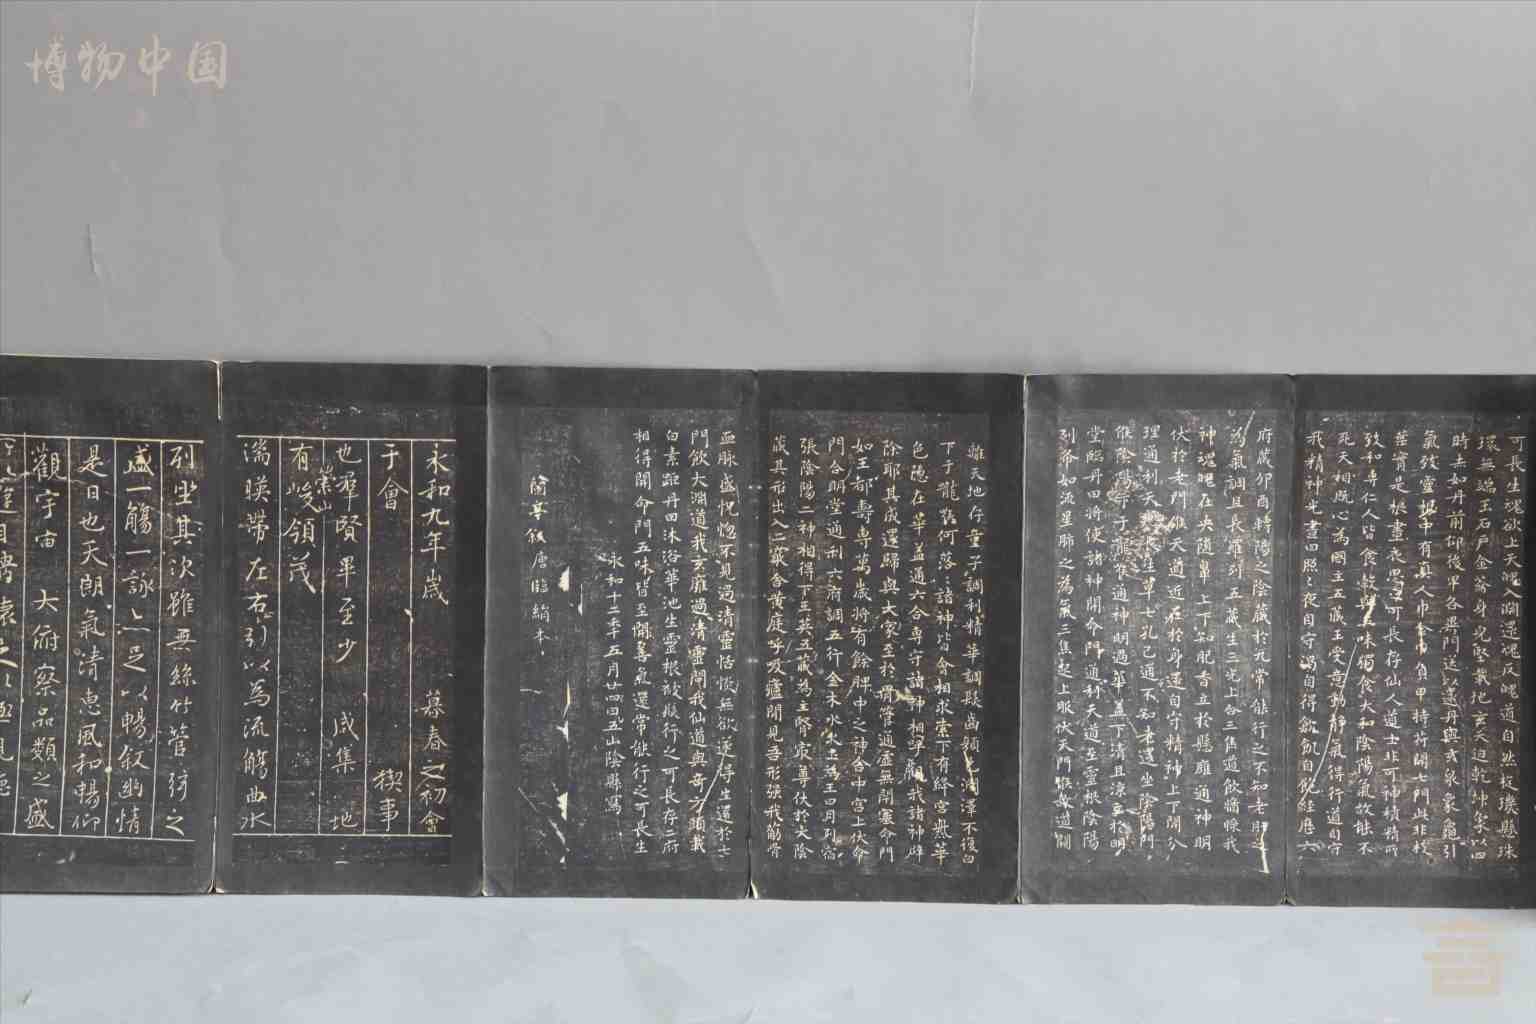 可長生魂欲上天魄入淵還魂反魄道自然旋璣懸珠
環無端玉石戶金籥身完堅載地玄天迫乾坤象以四
時赤如丹前仰後卑各異門送以還丹與玄泉象龜引
氣致靈根中有真人巾金巾負甲持符開七門此非枝
莖實是根晝夜思之可長存仙人道士非可神積精所
致和專仁人皆食穀與五味獨食大和陰陽氣故能不
死天相既心為國主五藏王受意動靜氣得行道自守
我精神光晝日照〻夜自守渴自得飲飢自飽經歷六
府藏卯酉轉陽之陰藏於九常能行之不知老肝之
為氣調且長羅列五藏生三光上合三焦道飲醬漿我
神魂魄在央隨鼻上下知肥香立於懸雍通神明
伏於老門候天道近在於身還自守精神上下開分
理通利天地長生草七孔已通不知老還坐陰陽門
候陰陽下于嚨喉通神明過華蓋下清且涼
堂臨丹田將使諸神開命門通利天道至靈根陰陽
列布如流星肺之為氣三焦起上服伏天門候故道闚
離天地存童子調利精華調髮齒顏色潤澤不復白
下于嚨喉何落〻諸神皆會相求索下有絳宮紫華
色隱在華蓋通六合專守諸神相呼觀我諸神辟
除耶其成還歸與大家至於胃管通虛無閉塞命門
如玉都壽專萬歲將有餘脾中之神舍中宮上伏命
門合明堂通利六府調五行金木水火土為王日月列宿
張陰陽二神相得下玉英五藏為主腎最尊伏於大陰
藏其形出入二竅舍黃庭呼吸廬間見吾形强我筋骨
血脉盛恍惚不見過清靈恬惔無欲遂得生還於七
門飲大淵道我玄廱過清靈問我仙道與奇方頭載
白素距丹田沐浴華池生靈根被髮行之可長存二府
相得開命門五味皆至開善氣還常能行之可長生
永和十二年五月廿四日五山陰縣寫
永和九年歲 暮春之初會
于會 稧事
也群賢畢至少 咸集 地
有崇山峻領茂
湍暎帶左右引以為流觴曲水
列坐其次雖無絲竹管弦之
盛一觴一詠亦足以暢叙幽情
是日也天朗氣清惠風和暢仰
觀宇宙 大俯察品類之盛
博物中国